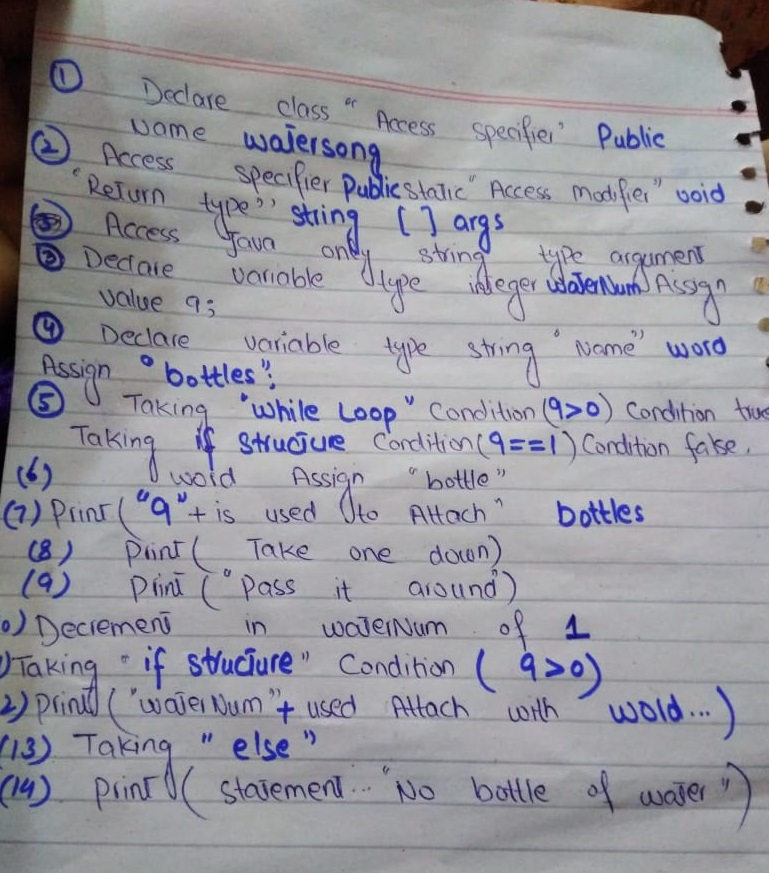 ① Declare class " Access specifier" Public
Name watersong
② Access specifier Public static "Access modifier" void
"Return type" string [ ] args
Access Java only string type argument
③ Declare variable type integer waterNum Assign
value 9;
④ Declare variable type string "Name" word
Assign "bottles";
⑤ Taking "while Loop" Condition (9>0) Condition true
Taking if structure Condition (9==1) Condition false.
(6) word Assign "bottle"
(7) Print ("9"+ is used to Attach" bottles
(8) Print ( Take one down)
(9) Print ("Pass it around")
0) Decrement in waterNum of 1
) Taking "if structure" Condition ( 9>0)
2) Print ("waterNum"+ used Attach with wold...)
(13) Taking "else"
(14) Print ( statement... "No bottle of water")